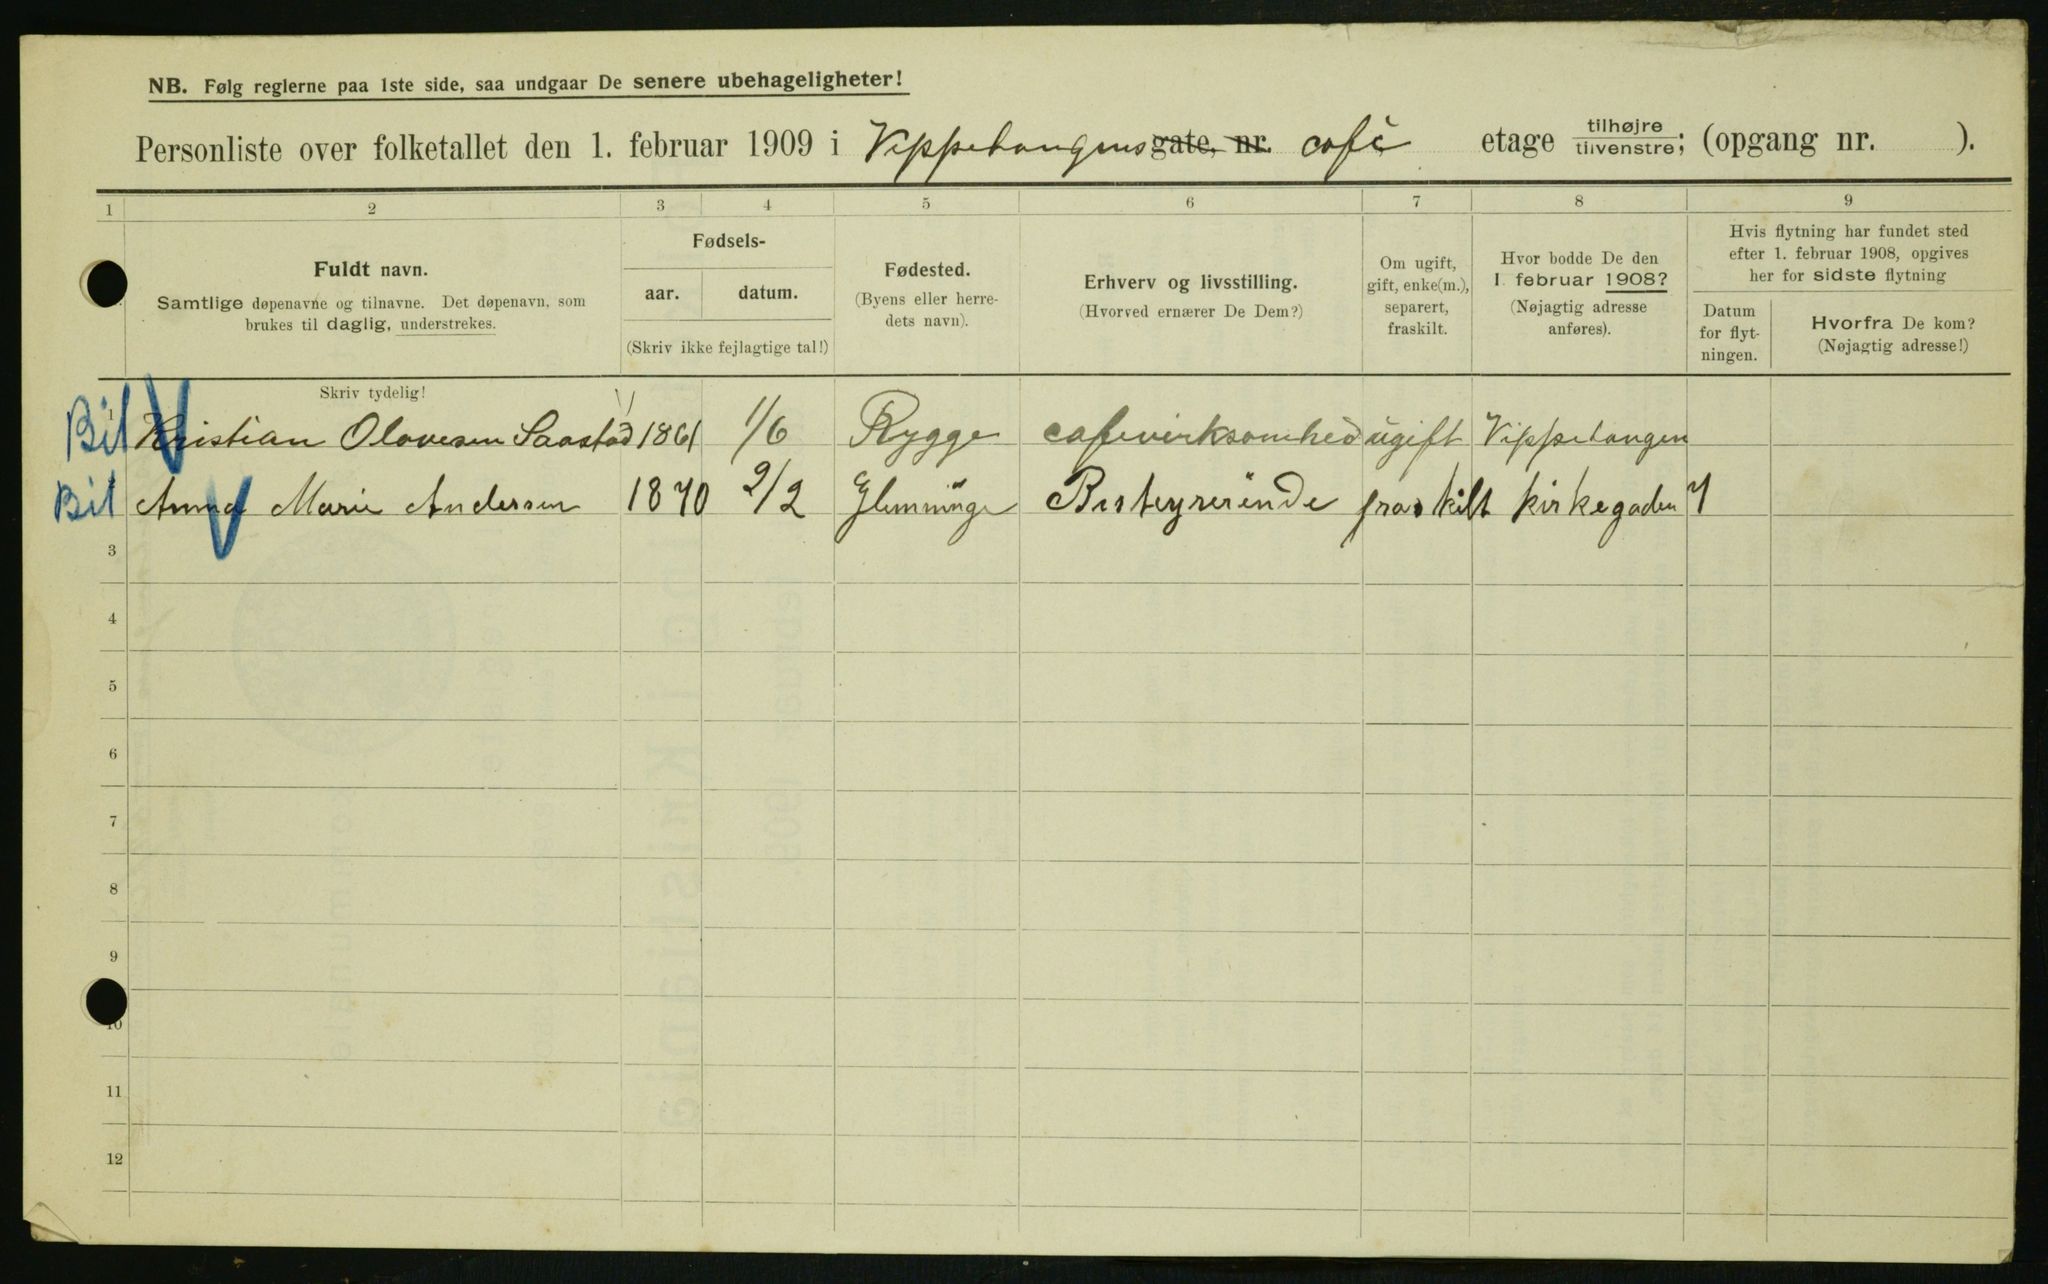 NB. Følg reglerne paa 1ste side, saa undgaar De senere ubehageligheter!
Personliste over folketallet den 1. februar 1909 i Vippetangens gate, nr. cafè etage tilhøjre tilvenstre; (opgang nr. ).
1 2 3 4 5 6 7 8 9
Fuldt navn.
Samtlige døpenavne og tilnavne. Det døpenavn, som
brukes til daglig, understrekes.
Fødsels-
aar. datum.
(Skriv ikke fejlagtige tal!)
Fødested.
(Byens eller herre-
dets navn).
Erhverv og livsstilling.
(Hvorved ernærer De Dem?)
Om ugift,
gift, enke(m.),
separert,
fraskilt.
Hvor bodde De den
1. februar 1908?
(Nøjagtig adresse
anføres).
Hvis flytning har fundet sted
efter 1. februar 1908, opgives
her for sidste flytning
Datum
for flyt-
ningen.
Hvorfra De kom?
(Nøjagtig adresse!)
Skriv tydelig!
Bil 1 Kristian Olavesen Saastad 1861 1/6 Rygge cafevirksomhed ugift Vippetangen
Bil Anna Marie Andersen 1870 2/2 Glemminge Bestyrerinde fraskilt Kirkegaden 7
3
4
5
6
7
8
9
10
11
12